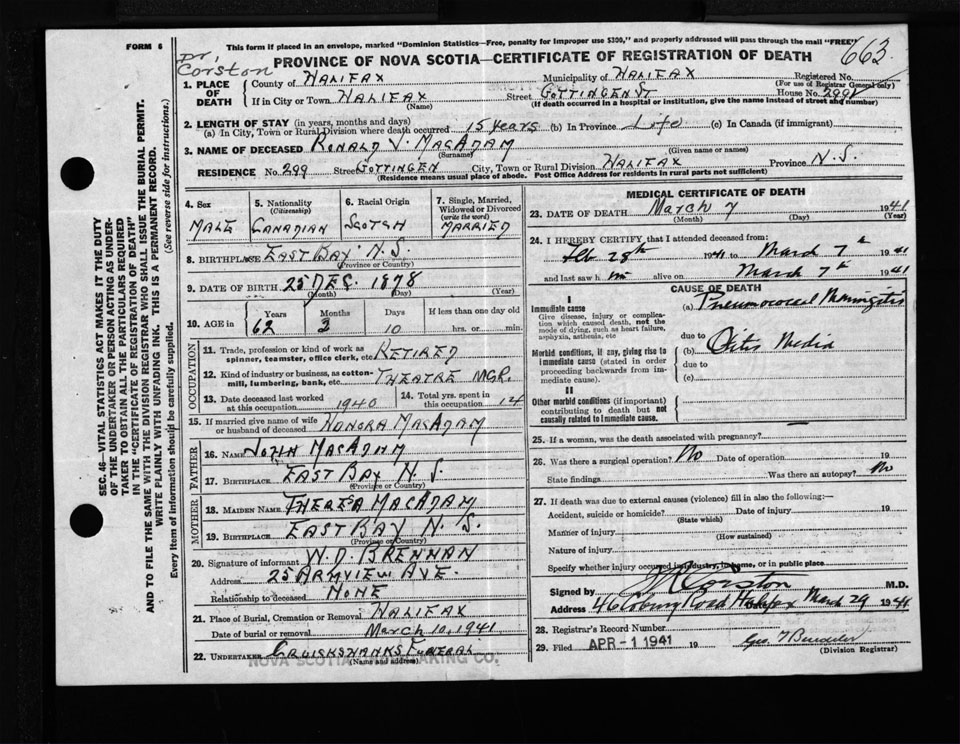 FORM 6
This form if placed in an envelope, marked "Dominion Statistics—Free, penalty for improper use $300," and properly addressed will pass through the mail "FREE"
PROVINCE OF NOVA SCOTIA—CERTIFICATE OF REGISTRATION OF DEATH
663
Dr. Corston
1. PLACE OF DEATH
County of HALIFAX Municipality of HALIFAX Registered No.
(For use of Registrar General only)
If in City or Town HALIFAX Street GOTTINGEN ST House No. 299
(Name) (If death occurred in a hospital or institution, give the name instead of street and number)
2. LENGTH OF STAY (in years, months and days)
(a) In City, Town or Rural Division where death occurred 15 YEARS (b) In Province LIFE (c) In Canada (if immigrant)
3. NAME OF DECEASED RONALD J. MACADAM
(Surname) (Given name or names)
RESIDENCE No. 299 Street GOTTINGEN City, Town or Rural Division HALIFAX Province N.S.
(Residence means usual place of abode. Post Office Address for residents in rural parts not sufficient)
4. Sex MALE
5. Nationality (Citizenship) CANADIAN
6. Racial Origin SCOTCH
7. Single, Married, Widowed or Divorced (write the word) MARRIED
8. BIRTHPLACE EAST BAY N.S.
(Province or Country)
9. DATE OF BIRTH 25 DEC. 1878
(Month) (Day) (Year)
10. AGE in Years 62 Months 2 Days 10 If less than one day old hrs. or min.
OCCUPATION
11. Trade, profession or kind of work as spinner, teamster, office clerk, etc. RETIRED
12. Kind of industry or business, as cotton-mill, lumbering, bank, etc. THEATRE MGR.
13. Date deceased last worked at this occupation 1940
14. Total yrs. spent in this occupation 14
15. If married give name of wife or husband of deceased HONORA MACADAM
FATHER
16. Name JOHN MACADAM
17. BIRTHPLACE EAST BAY N.S.
(Province or Country)
MOTHER
18. MAIDEN NAME THERESA MACADAM
19. BIRTHPLACE EAST BAY N.S.
(Province or Country)
20. Signature of informant W. D. BRENNAN
Address 25 ARMVIEW AVE.
Relationship to deceased NONE
21. Place of Burial, Cremation or Removal HALIFAX
Date of burial or removal March 10, 1941
22. UNDERTAKER CRUICKSHANKS FUNERAL
(Name and address)
NOVA SCOTIA UNDERTAKING CO.
MEDICAL CERTIFICATE OF DEATH
23. DATE OF DEATH March 7 1941
(Month) (Day) (Year)
24. I HEREBY CERTIFY, that I attended deceased from:
Feb 28th 1941 to March 7th 1941
and last saw him alive on March 7th 1941
CAUSE OF DEATH
I
Immediate cause
Give disease, injury or complication which caused death, not the mode of dying, such as heart failure, asphyxia, asthenia, etc
(a) Pneumococcal Meningitis
due to
Morbid conditions, if any, giving rise to immediate cause (stated in order proceeding backwards from immediate cause).
(b) Otitis Media
due to
(c)
II
Other morbid conditions (if important) contributing to death but not causally related to immediate cause.
25. If a woman, was the death associated with pregnancy?
26. Was there a surgical operation? No Date of operation 19
State findings Was there an autopsy? No
27. If death was due to external causes (violence) fill in also the following:—
Accident, suicide or homicide? Date of injury 19
(State which)
Manner of injury
(How sustained)
Nature of injury
Specify whether injury occurred in industry, in home, or in public place
Signed by J R Corston M.D.
Address 46 Coburg Road Halifax March 29 1941
28. Registrar's Record Number
29. Filed APR - 1 1941 19
(Division Registrar)
SEC. 46—VITAL STATISTICS ACT MAKES IT THE DUTY
OF THE UNDERTAKER OR PERSON ACTING AS UNDER-
TAKER TO OBTAIN ALL THE PARTICULARS REQUIRED
IN THE "CERTIFICATE OF REGISTRATION OF DEATH"
AND TO FILE THE SAME WITH THE DIVISION REGISTRAR WHO SHALL ISSUE THE BURIAL PERMIT.
WRITE PLAINLY WITH UNFADING INK. THIS IS A PERMANENT RECORD.
Every item of information should be carefully supplied. (See reverse side for instructions.)